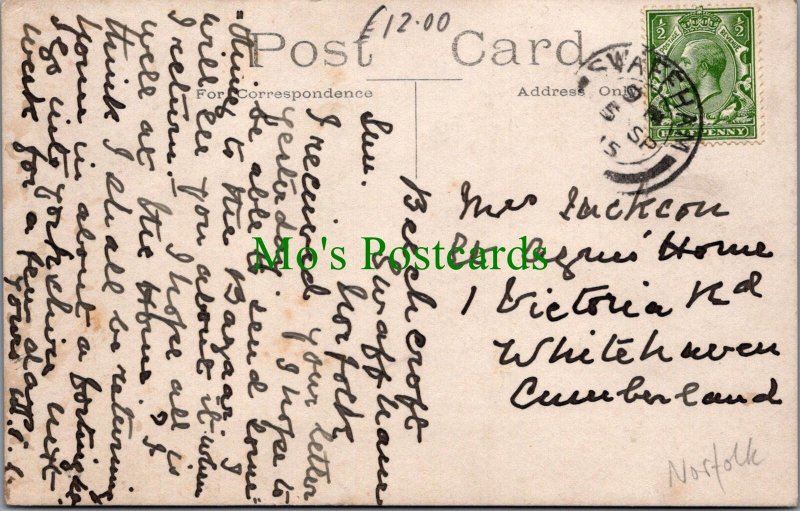 £12.00
Post Card
For Correspondence
Address Only
½ ½
HALFPENNY
SWAFFHAM
SP
5
15
Mo's Postcards
Beechcroft
Swaffham
Norfolk
Sun.
I received your letter
yesterday. I hope to
be able to send some=
=thing to the Bazaar. I
will see you about it when
I return. I hope all is
well at the Home. I
think I shall be returning
home in about a fortnight
I go into Yorkshire next
week for a few days.
Yours
Mrs Jackson
St Agnes' Home
1 Victoria Rd
Whitehaven
Cumberland
Norfolk